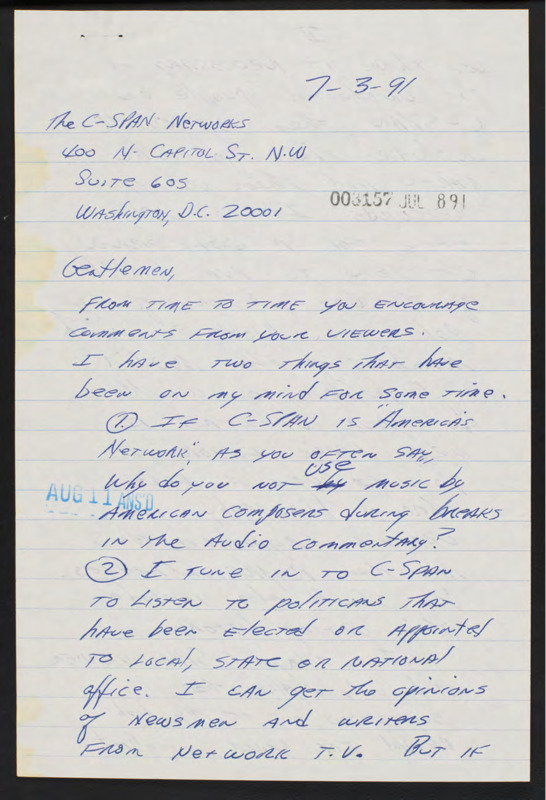 7-3-91
The C-SPAN Networks
400 N. Capitol St. N.W
Suite 605
Washington, D.C. 20001
003157 JUL 8 91
Gentlemen,
From time to time you encourage
comments from your viewers.
I have two things that have
been on my mind for some time.
① If C-SPAN is "America's
Network", as you often say,
Why do you not by use music by
AUG 11 ANS'D
American composers during breaks
in the audio commentary?
② I tune in to C-Span
to listen to politicians that
have been elected or appointed
to local, state or national
office. I can get the opinions
of newsmen and writers
from network T.V. But if